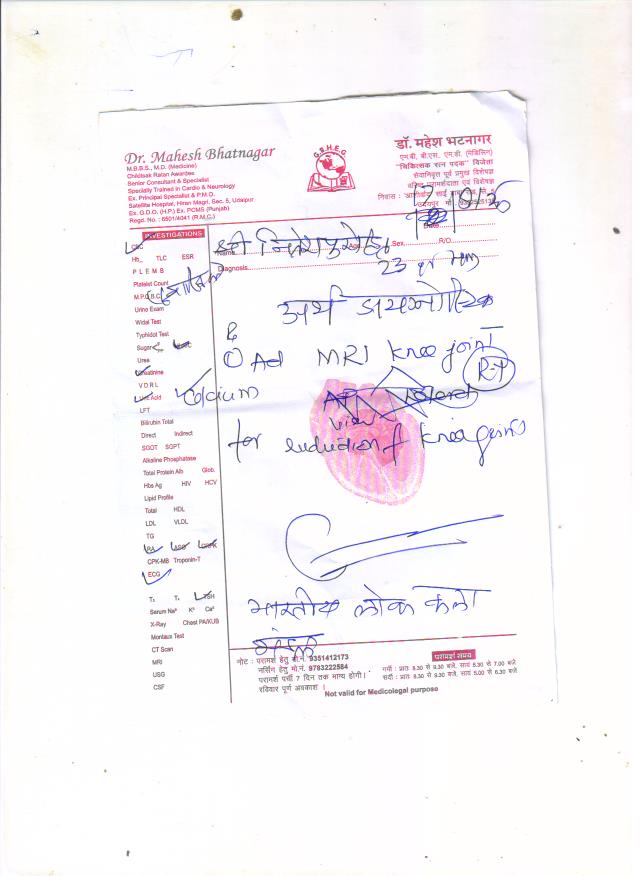 Dr. Mahesh Bhatnagar
M.B.B.S., M.D. (Medicine)
Chikitsak Ratan Awardee
Senior Consultant & Specialist
Specially Trained in Cardio & Neurology
Ex. Principal Specialist & P.M.O.
Satellite Hospital, Hiran Magri, Sec. 5, Udaipur
Ex. G.D.O. (H.P.) Ex. PCMS (Punjab)
Regd. No. : 6501/4041 (R.M.C.)
G.B.H.E.G
डॉ. महेश भटनागर
एम.बी. बी.एस. एम.डी. (मेडिसिन)
"चिकित्सक रत्न पदक" विजेता
सेवानिवृत पूर्व प्रमुख विशेषज्ञ
वरिष्ठ परामर्शदाता एवं विशेषज्ञ
निवास :
उदयपुर
Date
INVESTIGATIONS
CBC
Hb_ TLC ESR
P L E M B
Platelet Count
M.P.
Urine Exam
Widal Test
Typhidot Test
Sugar
Urea
Creatinine
V D R L
Uric Acid Calcium
LFT
Bilirubin Total
Direct Indirect
SGOT SGPT
Alkaline Phosphatase
Total Protein Alb Glob.
Hbs Ag HIV HCV
Lipid Profile
Total HDL
LDL VLDL
TG
RA ASO
CPK-MB Troponin-T
ECG
T₃ T₄ TSH
Serum Na⁺ K⁺ Ca²
X-Ray Chest PA/KUB
Montaux Test
CT Scan
MRI
USG
CSF
Name श्री Age Sex R/O
Diagnosis 23
① Ad MRI knee joint
Rt
view
for knee joint
भारतीय लोक कला
मंडल
नोट : परामर्श हेतु मो.नं. 9351412173
नर्सिंग हेतु मो.नं. 9783222584
परामर्श पर्ची 7 दिन तक मान्य होगी।
रविवार पूर्ण अवकाश ।
परामर्श समय
गर्मी : प्रातः 8.30 से 9.30 बजे, सायं 5.30 से 7.00 बजे
सर्दी : प्रातः 8.30 से 9.30 बजे, सायं 5.00 से 6.30 बजे
Not valid for Medicolegal purpose